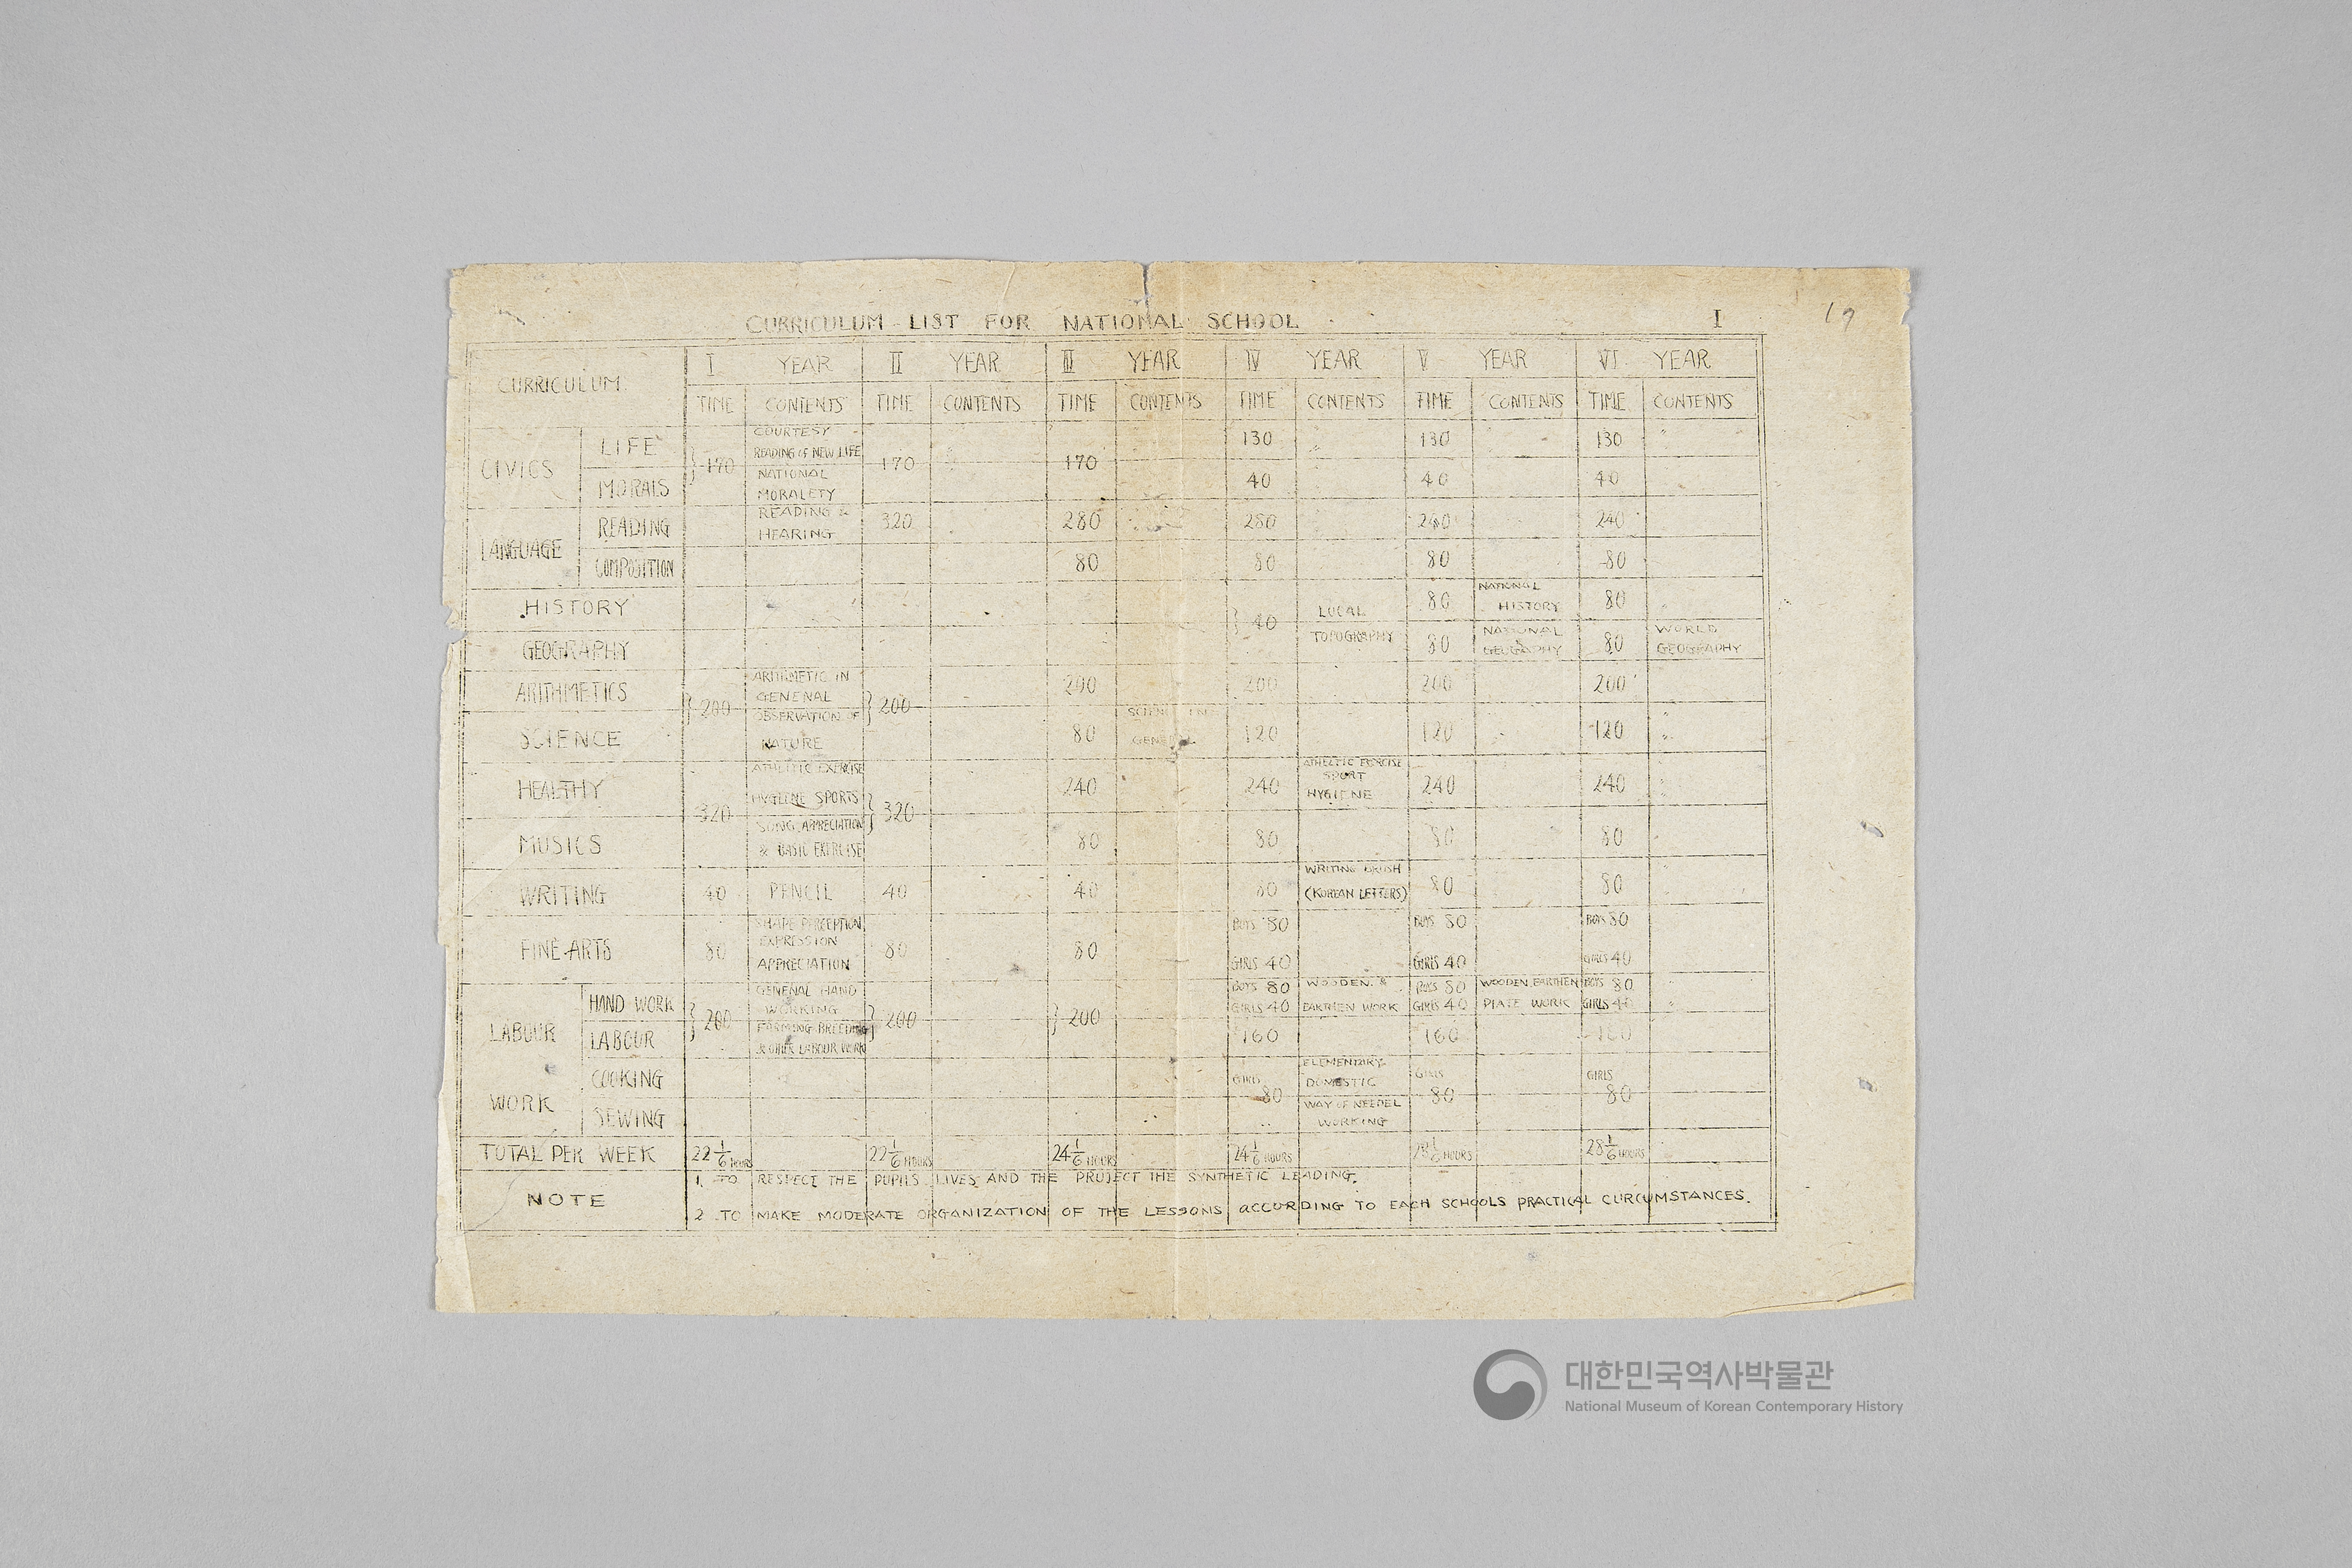 CURRICULUM LIST FOR NATIONAL SCHOOL I
19
CURRICULUM I YEAR II YEAR III YEAR IV YEAR V YEAR VI YEAR
TIME CONTENTS TIME CONTENTS TIME CONTENTS TIME CONTENTS TIME CONTENTS TIME CONTENTS
CIVICS LIFE MORALS 170 COURTESY READING OF NEW LIFE NATIONAL MORALETY 170 170
LIFE 130 " 130 " 130 "
MORALS 40 40 40
LANGUAGE READING READING & HEARING 320 280 280 240 240
COMPOSITION 80 80 80 80
HISTORY 40 LOCAL TOPOGRAPHY 80 NATIONAL HISTORY 80
GEOGRAPHY 80 NATIONAL GEOGAPHY 80 WORLD GEOGRAPHY
ARITHMETICS 200 ARITHMETIC IN GENENAL 200 200 200 200 200
SCIENCE OBSERVATION OF NATURE 80 120 120 120
HEALTHY 320 ATHLETIC EXERCISE HYGIENE SPORTS 320 240 240 SPORT HYGIENE 240 240
MUSICS SONG APPRECIATION & BASIC EXERCISE 80 80 80 80
WRITING 40 PENCIL 40 40 80 WRITING BRUSH (KOREAN LETTERS) 80 80
FINE ARTS 80 SHAPE PERCEPTION EXPRESSION APPRECIATION 80 80 BOYS 80 GIRLS 40 BOYS 80 GIRLS 40 BOYS 80 GIRLS 40
LABOUR WORK HAND WORK 200 GENENAL HAND WORKING 200 200 BOYS 80 GIRLS 40 WOODEN & EARTHEN WORK BOYS 80 GIRLS 40 WOODEN, EARTHEN PLATE WORK BOYS 80 GIRLS 40
LABOUR FARMING BREEDING & OTHER LABOUR WORK 160 160 160
COOKING GIRLS 80 ELEMENTARY DOMESTIC GIRLS 80 GIRLS 80
SEWING WAY OF NEEDEL WORKING
TOTAL PER WEEK 22 1/6 HOURS 22 1/6 HOURS 24 1/6 HOURS 24 1/6 HOURS 28 1/6 HOURS 28 1/6 HOURS
NOTE 1. TO RESPECT THE PUPILS LIVES AND THE PROJECT THE SYNTHETIC LEADING.
2 TO MAKE MODERATE ORGANIZATION OF THE LESSONS ACCORDING TO EACH SCHOOLS PRACTICAL CURCUMSTANCES.
대한민국역사박물관
National Museum of Korean Contemporary History